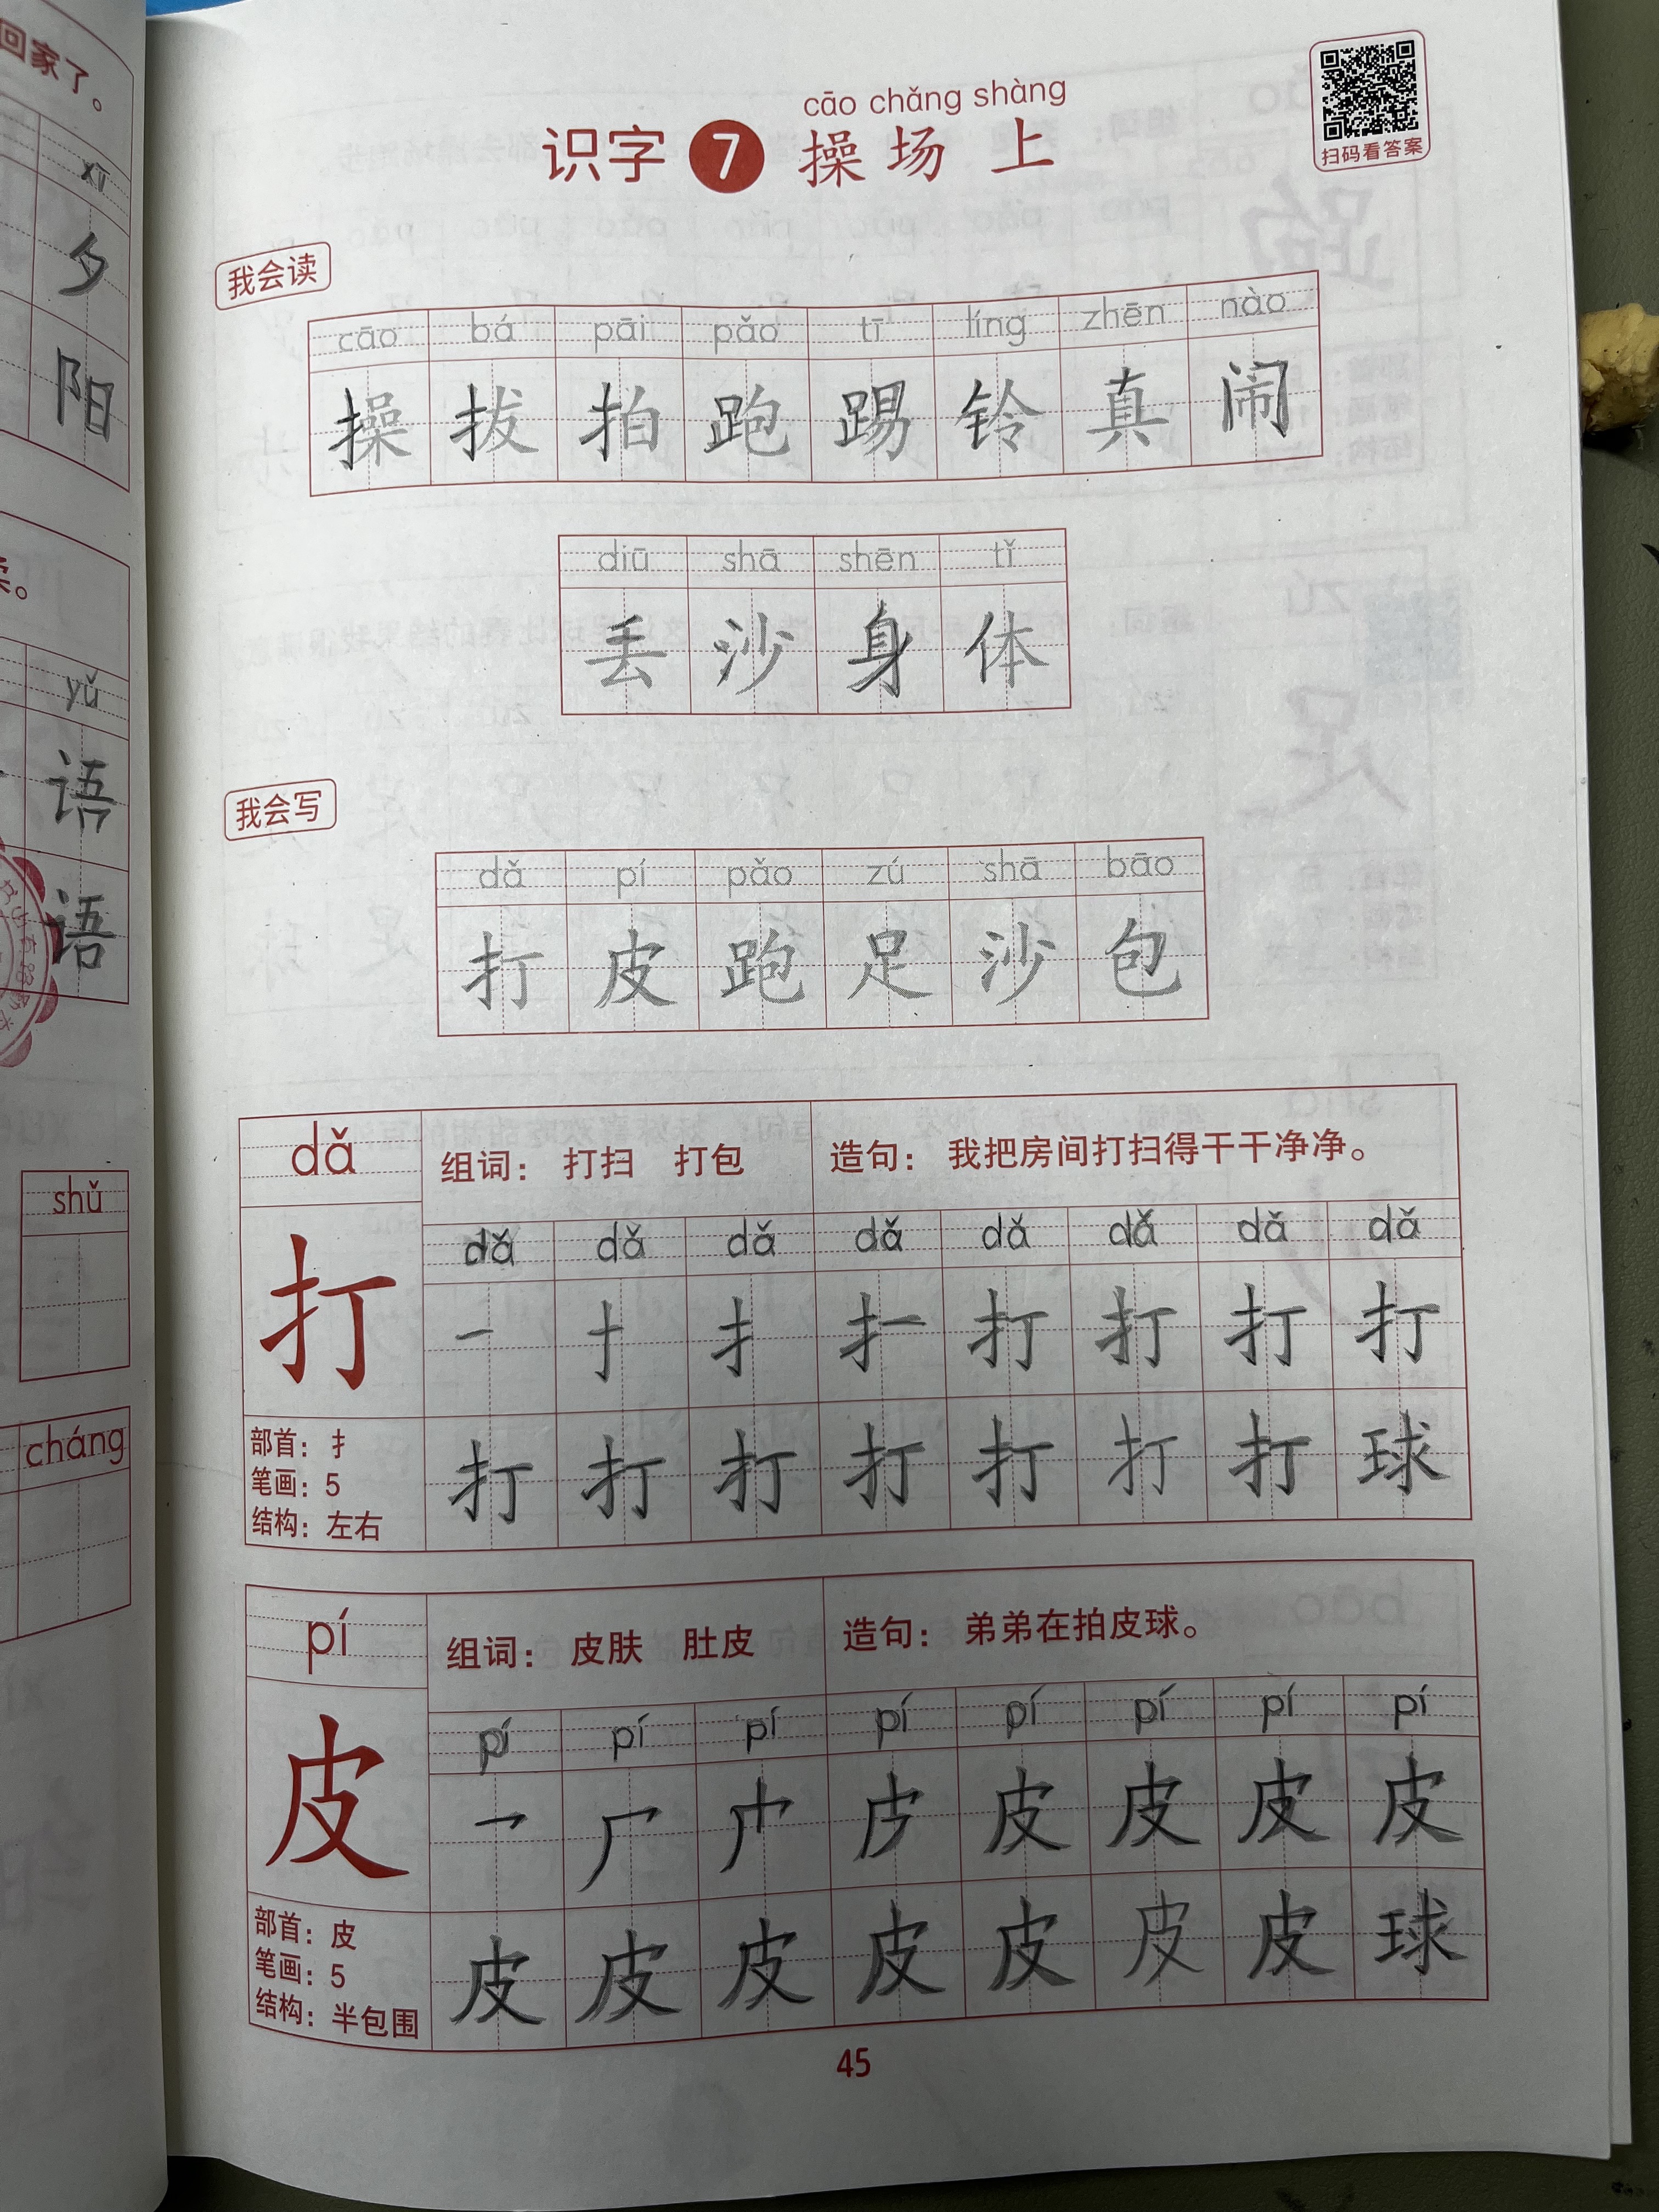 回家了。
xī
夕
阳
读。
yǔ
语
语
shǔ
cháng
cāo chǎng shàng
识字 7 操场上
扫码看答案
我会读
cāo bá pāi pǎo tī líng zhēn nào
操 拔 拍 跑 踢 铃 真 闹
diū shā shēn tǐ
丢 沙 身 体
我会写
dǎ pí pǎo zú shā bāo
打 皮 跑 足 沙 包
dǎ 组词： 打扫 打包 造句： 我把房间打扫得干干净净。
dǎ dǎ dǎ dǎ dǎ dǎ dǎ dǎ
打 一 十 扌 扌一 打 打 打 打
部首：扌
笔画：5
结构：左右
打 打 打 打 打 打 打 球
pí 组词： 皮肤 肚皮 造句： 弟弟在拍皮球。
pí pí pí pí pí pí pí pí
皮 皮 皮 皮 皮
部首：皮
笔画：5
结构：半包围
皮 皮 皮 皮 皮 皮 皮 球
45